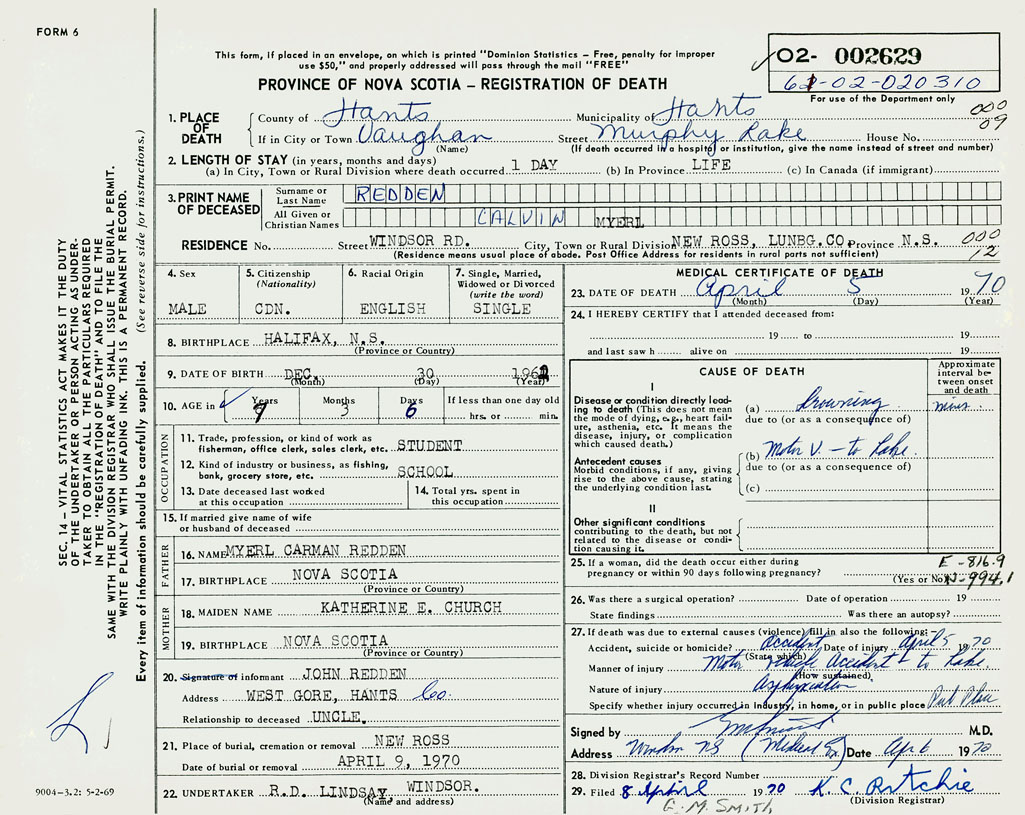 FORM 6
This form, if placed in an envelope, on which is printed "Dominion Statistics – Free, penalty for improper
use $50," and properly addressed will pass through the mail "FREE"
PROVINCE OF NOVA SCOTIA – REGISTRATION OF DEATH
02- 002629
02-020310
For use of the Department only
000
09
1. PLACE OF DEATH
County of Hants Municipality of Hants
If in City or Town Vaughan Street Murphy Lake House No.
(Name) (If death occurred in a hospital or institution, give the name instead of street and number)
2. LENGTH OF STAY (in years, months and days)
(a) In City, Town or Rural Division where death occurred 1 DAY (b) In Province LIFE (c) In Canada (if immigrant)
3. PRINT NAME OF DECEASED
Surname or Last Name REDDEN
All Given or Christian Names CALVIN MYERL
RESIDENCE No. Street WINDSOR RD. City, Town or Rural Division NEW ROSS, LUNBG.CO. Province N.S. 000
(Residence means usual place of abode. Post Office Address for residents in rural parts not sufficient) 12
4. Sex
MALE
5. Citizenship
(Nationality)
CDN.
6. Racial Origin
ENGLISH
7. Single, Married,
Widowed or Divorced
(write the word)
SINGLE
8. BIRTHPLACE HALIFAX, N.S.
(Province or Country)
9. DATE OF BIRTH DEC. 30 196
(Month) (Day) (Year)
10. AGE in Years Months Days If less than one day old
9 3 6 hrs. or min.
OCCUPATION
11. Trade, profession, or kind of work as
fisherman, office clerk, sales clerk, etc. STUDENT
12. Kind of industry or business, as fishing,
bank, grocery store, etc. SCHOOL
13. Date deceased last worked
at this occupation
14. Total yrs. spent in
this occupation
15. If married give name of wife
or husband of deceased
FATHER
16. NAME MYERL CARMAN REDDEN
17. BIRTHPLACE NOVA SCOTIA
(Province or Country)
MOTHER
18. MAIDEN NAME KATHERINE E. CHURCH
19. BIRTHPLACE NOVA SCOTIA
(Province or Country)
20. Signature of informant JOHN REDDEN
Address WEST GORE, HANTS Co.
Relationship to deceased UNCLE.
21. Place of burial, cremation or removal NEW ROSS
Date of burial or removal APRIL 9, 1970
22. UNDERTAKER R.D. LINDSAY WINDSOR.
(Name and address)
MEDICAL CERTIFICATE OF DEATH
23. DATE OF DEATH April 5 1970
(Month) (Day) (Year)
24. I HEREBY CERTIFY that I attended deceased from:
19 to 19
and last saw h alive on 19
CAUSE OF DEATH
Approximate
interval be-
tween onset
and death
I
Disease or condition directly lead-
ing to death (This does not mean
the mode of dying, e.g., heart fail-
ure, asthenia, etc. It means the
disease, injury, or complication
which caused death.)
(a) Drowning mins
due to (or as a consequence of)
Antecedent causes
Morbid conditions, if any, giving
rise to the above cause, stating
the underlying condition last.
(b) Motor V. – to Lake
due to (or as a consequence of)
(c)
II
Other significant conditions
contributing to the death, but not
related to the disease or condi-
tion causing it.
25. If a woman, did the death occur either during
pregnancy or within 90 days following pregnancy?
(Yes or No)
E-816.9
N-994.1
26. Was there a surgical operation? Date of operation 19
State findings Was there an autopsy?
27. If death was due to external causes (violence) fill in also the following:
Accident, suicide or homicide? Accident Date of injury April 5 1970
(State which)
Manner of injury Motor Vehicle Accident to Lake
(How sustained)
Nature of injury Asphyxiation
Specify whether injury occurred in Industry, in home, or in public place Pub Place
Signed by M.D.
Address Windsor NS (Medical Ex.) Date Apr 6 1970
28. Division Registrar's Record Number
29. Filed 8 April 1970 K. C. Ritchie
(Division Registrar)
G. M. SMITH
SEC. 14 – VITAL STATISTICS ACT MAKES IT THE DUTY
OF THE UNDERTAKER OR PERSON ACTING AS UNDER-
TAKER TO OBTAIN ALL THE PARTICULARS REQUIRED
IN THE "REGISTRATION OF DEATH" AND TO FILE THE
SAME WITH THE DIVISION REGISTRAR WHO SHALL ISSUE THE BURIAL PERMIT.
WRITE PLAINLY WITH UNFADING INK. THIS IS A PERMANENT RECORD.
Every item of information should be carefully supplied. (See reverse side for instructions.)
9004-3.2: 5-2-69